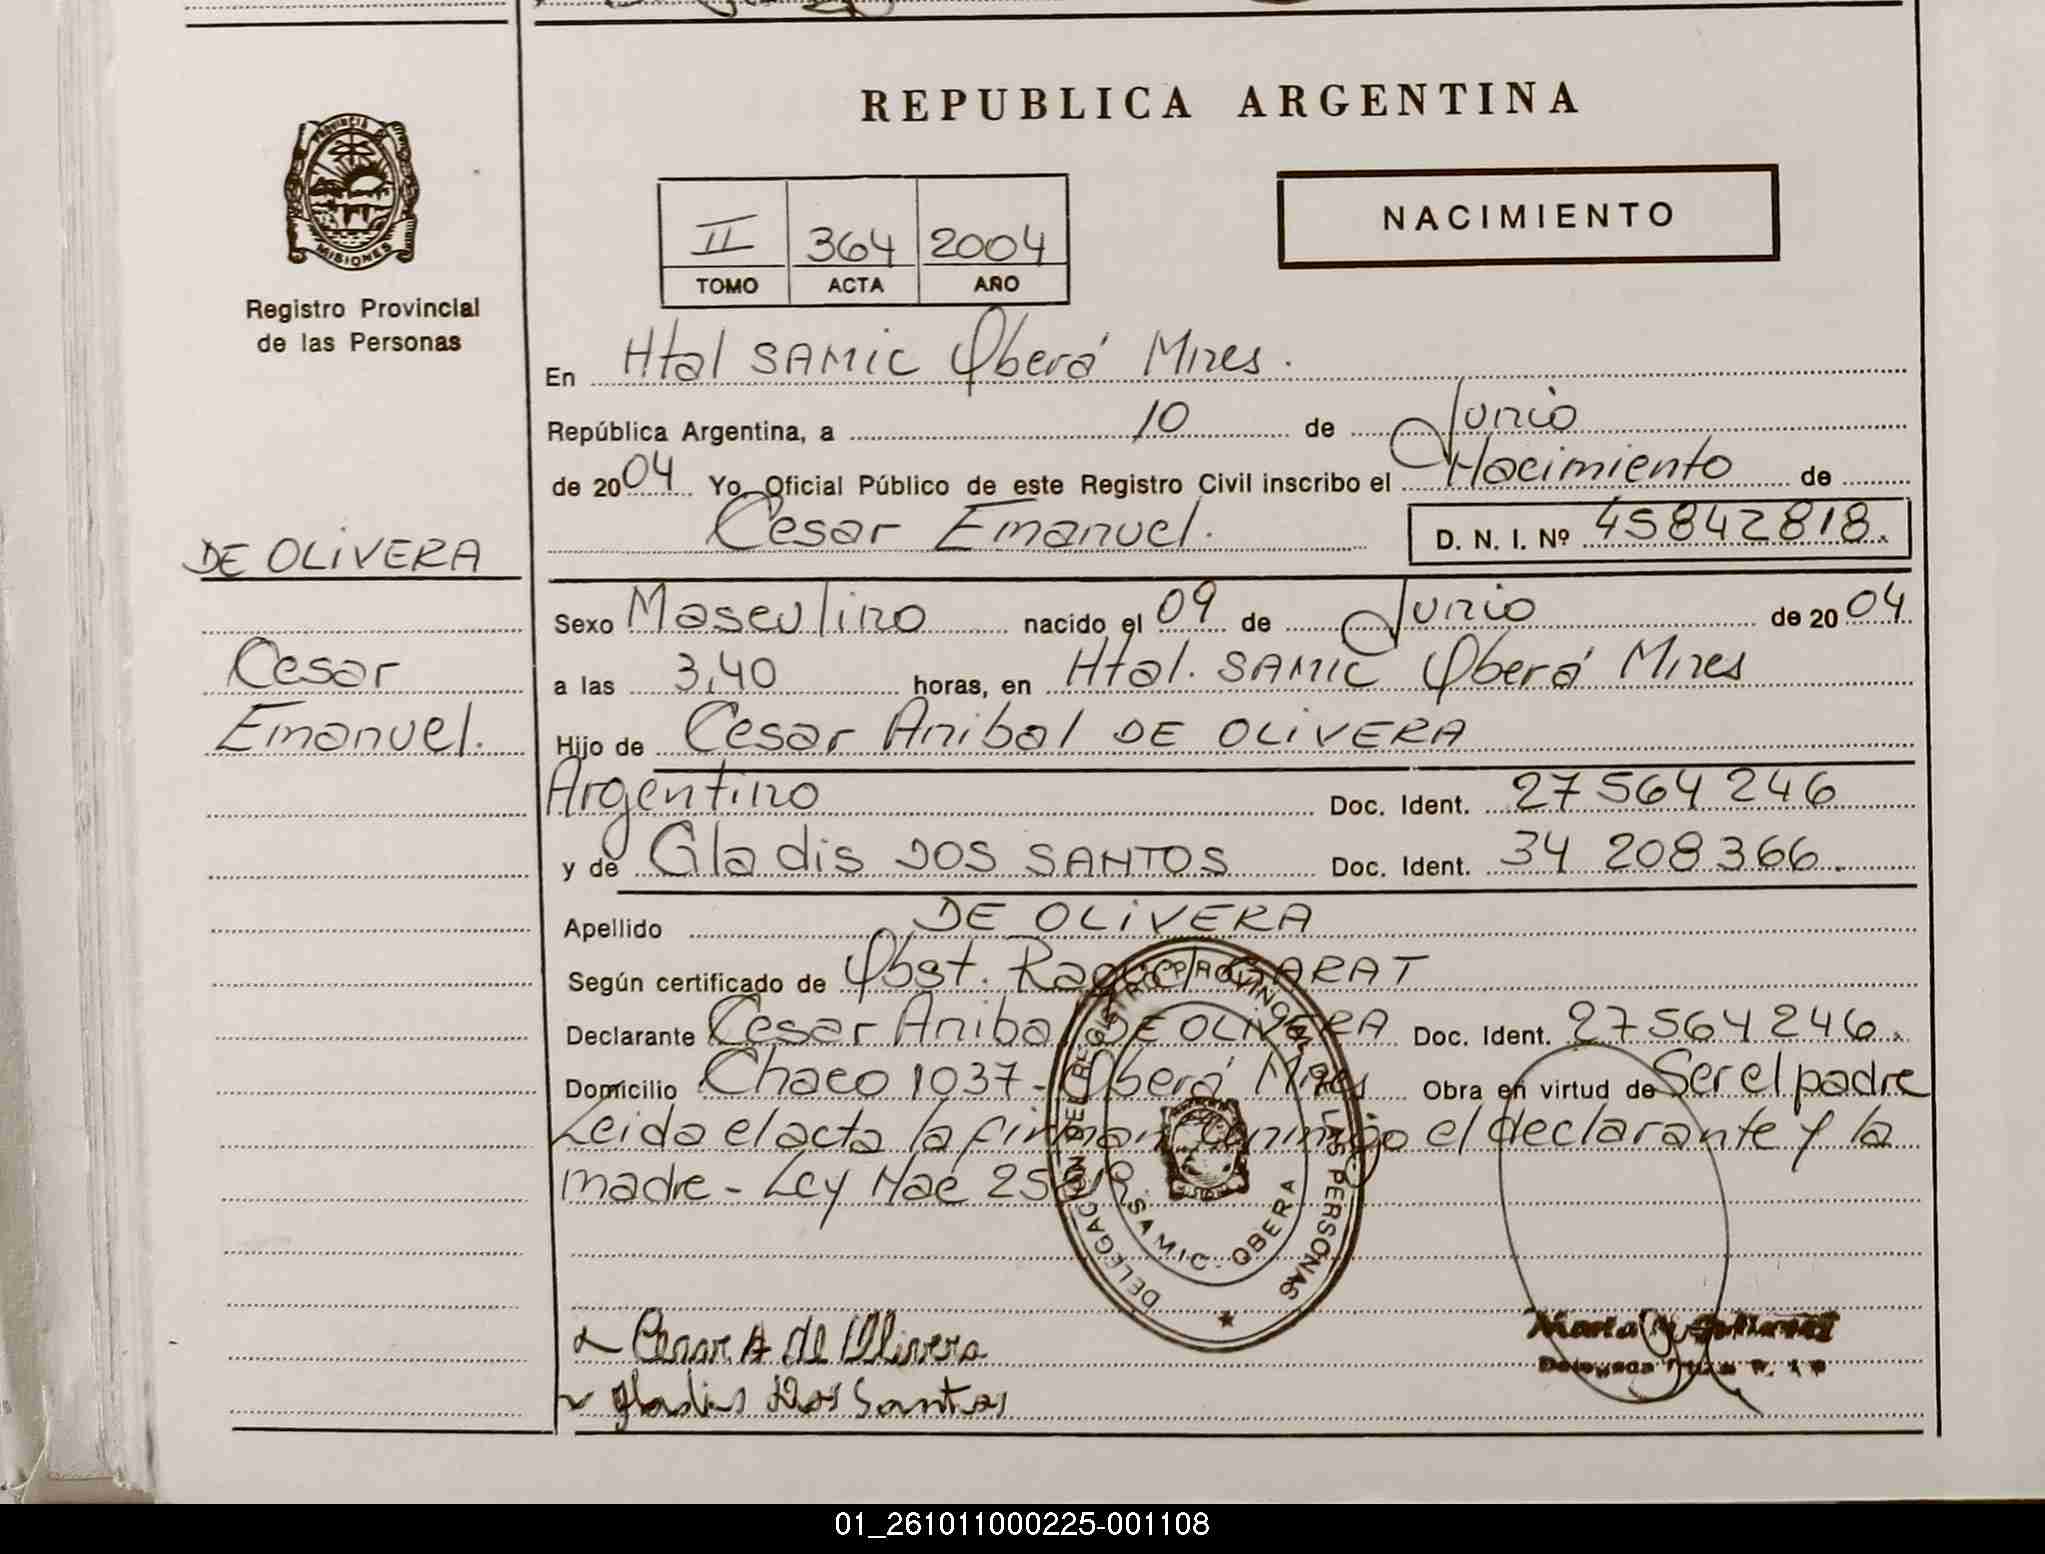 REPUBLICA ARGENTINA
PROVINCIA DE
MISIONES
Registro Provincial
de las Personas
NACIMIENTO
II 364 2004
TOMO ACTA AÑO
En Htal SAMIC Oberá Mnes.
República Argentina, a 10 de Junio
de 2004 Yo, Oficial Público de este Registro Civil inscribo el Nacimiento de
Cesar Emanuel. D. N. I. Nº 45842818.
DE OLIVERA
Cesar
Emanuel.
Sexo Masculino nacido el 09 de Junio de 2004
a las 3,40 horas, en Htal. SAMIC Oberá Mnes
Hijo de Cesar Anibal DE OLIVERA
Argentino Doc. Ident. 27564246
y de Gladis DOS SANTOS Doc. Ident. 34 208366.
Apellido DE OLIVERA
Según certificado de Obst. Raquel GARAT
Declarante Cesar Anibal DE OLIVERA Doc. Ident. 27564246.
Domicilio Chaco 1037 - Oberá Mnes Obra en virtud de Ser el padre
Leida el acta la firman conmigo el declarante y la
madre - Ley Nac
DELEGACION DEL REGISTRO PROVINCIAL DE LAS PERSONAS
SAMIC - OBERA
Cesar A de Olivera
Gladis Dos Santos
01_261011000225-001108